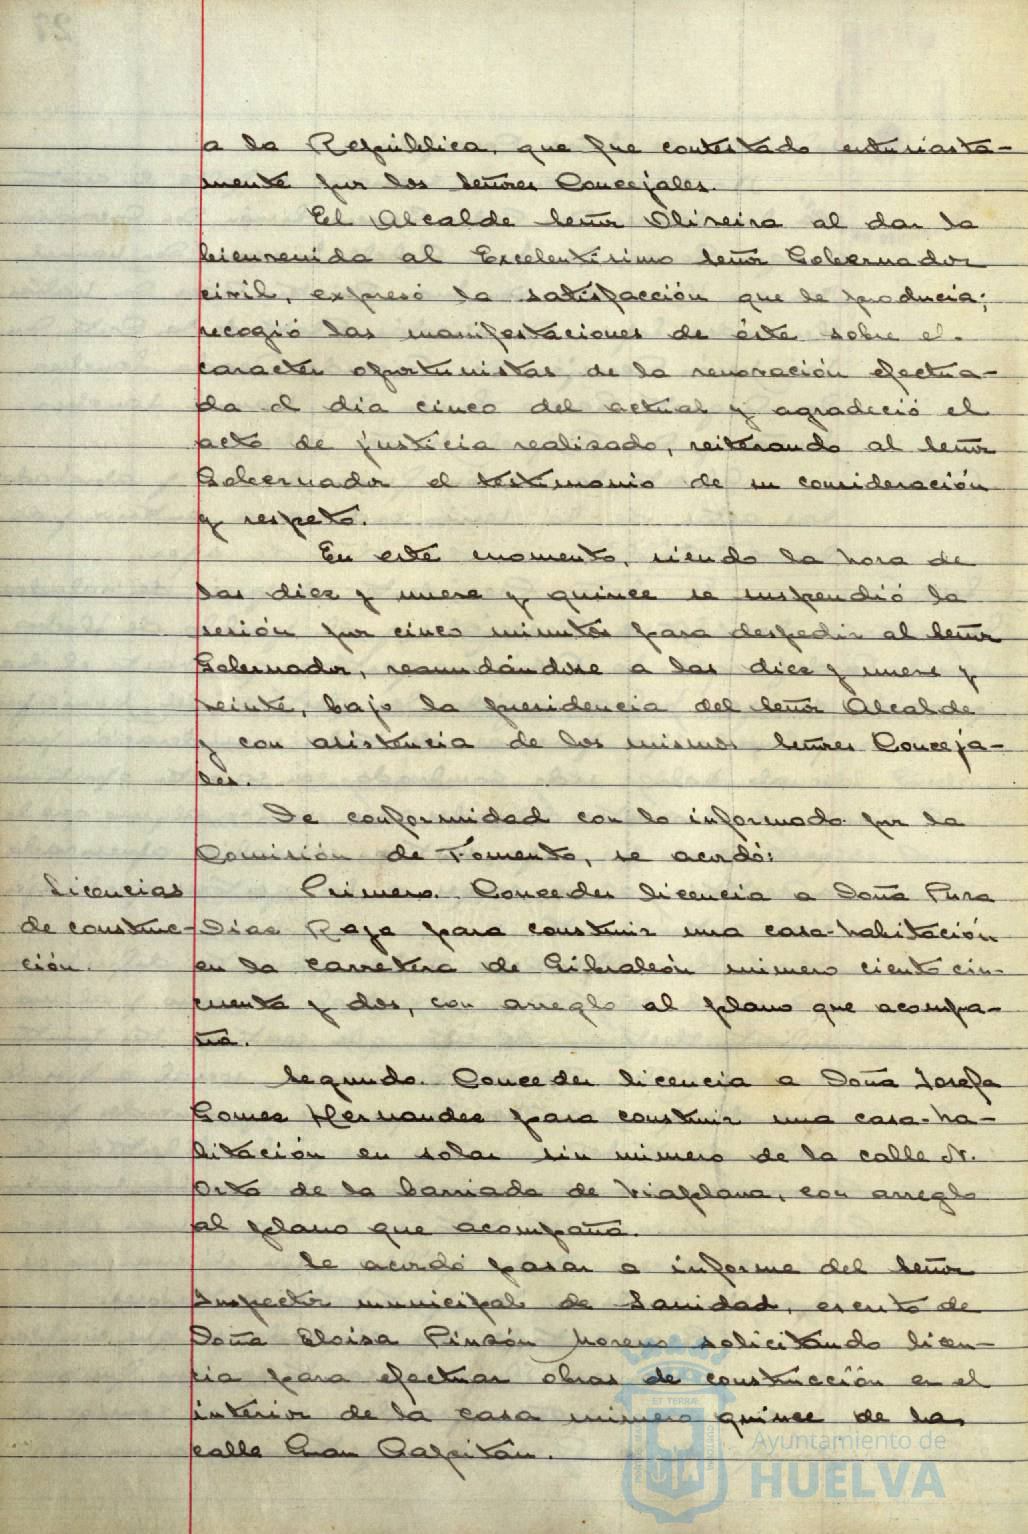 a la República, que fue contestado entusiasta-
mente por los Señores Concejales.
El Alcalde Señor Oliveira al dar la
bienvenida al Excelentísimo Señor Gobernador
civil, expresó la satisfacción que le producia;
recogió las manifestaciones de éste sobre el
caracter oportunistas de la renovación efectua-
da el dia cinco del actual y agradeció el
acto de justicia realizado, reiterando al Señor
Gobernador el testimonio de su consideración
y respeto.
En este momento, siendo la hora de
las diez y nueve y quince se suspendió la
sesión por cinco minutos para despedir al Señor
Gobernador, reanudándose a las diez y nueve y
veinte, bajo la presidencia del Señor Alcalde
y con asistencia de los mismos Señores Conceja-
les.
De conformidad con lo informado por la
Comisión de Fomento, se acordó:
Licencias
de construc-
ción.
Primero. Conceder licencia a Doña Pura
Diaz Raja para construir una casa-habitación
en la carretera de Gibraleón número ciento cin-
cuenta y dos, con arreglo al plano que acompa-
ña.
Segundo. Conceder licencia a Doña Josefa
Gomez Hernandez para construir una casa-ha-
bitación en solar sin número de la calle N.
Orto de la barriada de Viaplana, con arreglo
al plano que acompaña.
Se acordó pasar a informe del Señor
Inspector municipal de Sanidad, escrito de
Doña Eloisa Pinzón Moreno solicitando licen-
cia para efectuar obras de construcción en el
interior de la casa número quince de la
calle Gran Capitán.
Ayuntamiento de
HUELVA